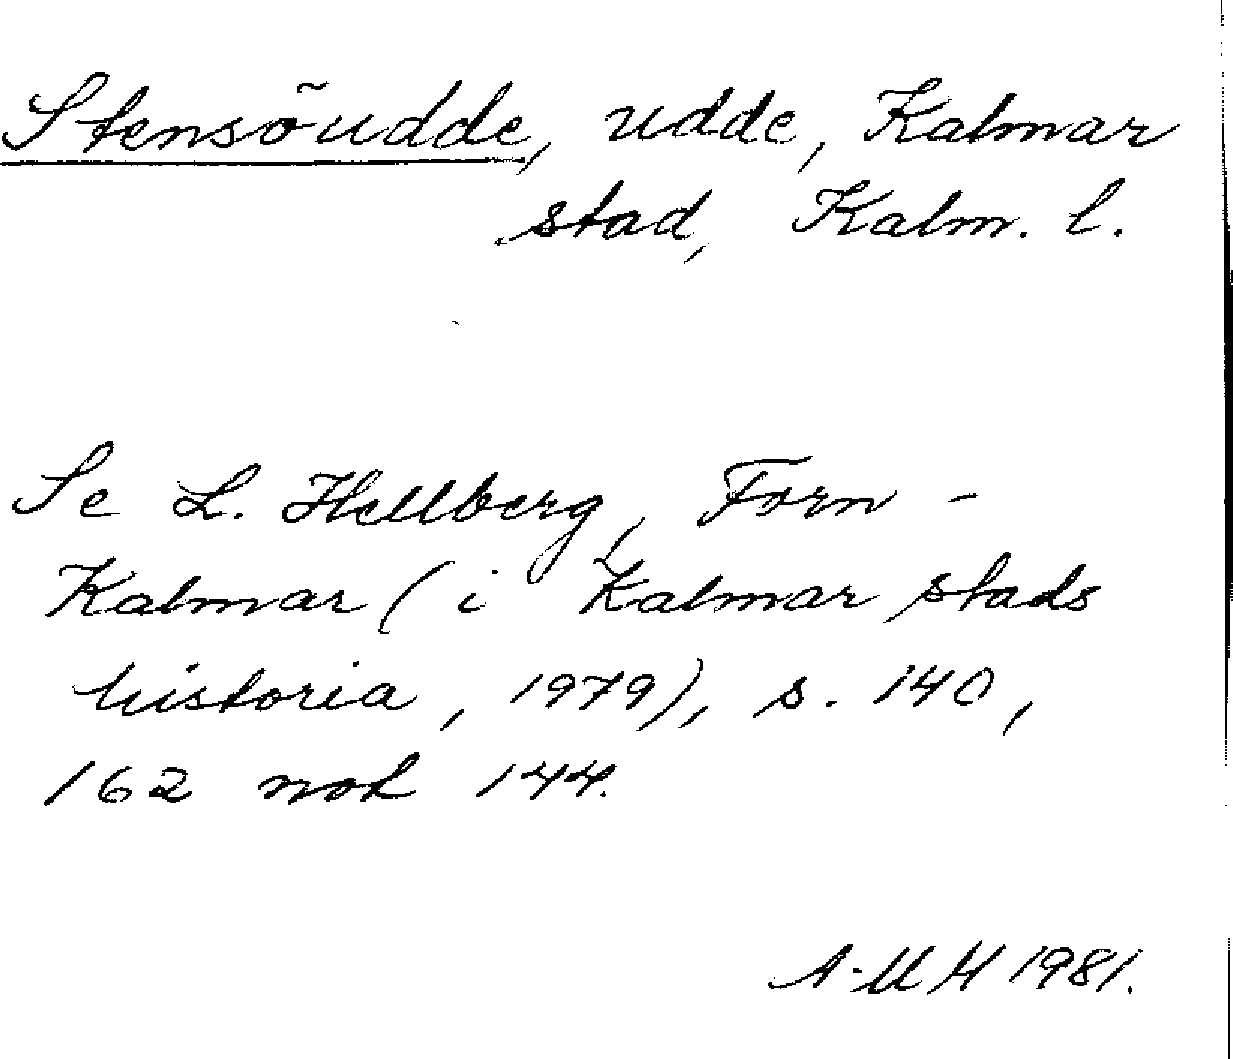 Stensöudde, udde, Kalmar
stad, Kalm. l.
Se L. Hellberg, Forn-
Kalmar (i Kalmar stads
historia, 1979), s. 140,
162 not 144.
A-M H 1981.